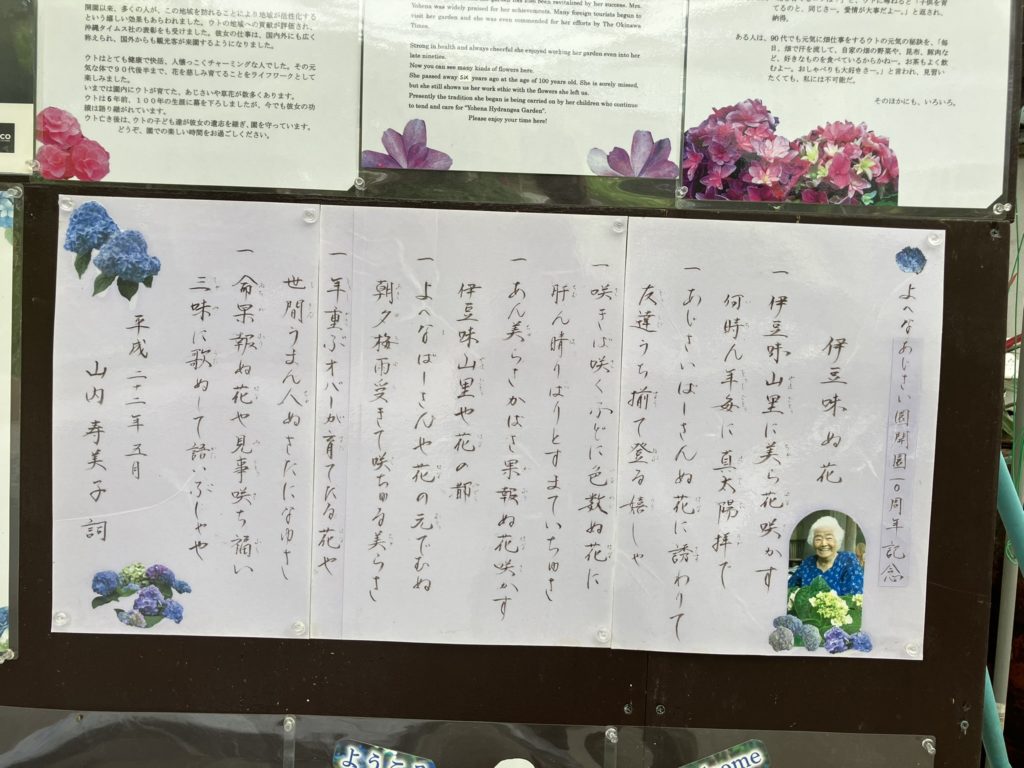 開園以来、多くの人が、この地域を訪れることにより地域が活性化する
という嬉しい効果もあらわれました。ウトの地域への貢献が評価され、
沖縄タイムス社の表彰をも受けました。彼女の仕事は、国内外にも広く
称えられ、国外からも観光客が来園するようになりました。
ウトはとても健康で快活、人懐っこくチャーミングな人でした。その元
気な体で９０代後半まで、花を慈しみ育てることをライフワークとして
楽しみました。
いまでは園内にウトが育てた、あじさいや草花が数多くあります。
ウトは６年前、１００年の生涯に幕を下ろしましたが、今でも彼女の功
績は語り継がれています。
ウト亡き後は、ウトの子ども達が彼女の遺志を継ぎ、園を守っています。
どうぞ、園での楽しい時間をお過ごしください。
Yohena was widely praised for her achievements. Many foreign tourists began to
visit her garden and she was even commended for her efforts by The Okinawa
Times.
Strong in health and always cheerful she enjoyed working her garden even into her
late nineties.
Now you can see many kinds of flowers here.
She passed away six years ago at the age of 100 years old. She is surely missed,
but she still shows us her work ethic with the flowers she left us.
Presently the tradition she began is being carried on by her children who continue
to tend and care for "Yohena Hydrangea Garden".
Please enjoy your time here!
てるのと、同じさー。愛情が大事だよー。」と返され、
納得。
ある人は、90代でも元気に畑仕事をするウトの元気の秘訣を、「毎
日、畑で汗を流して、自家の畑の野菜や、昆布、豚肉な
ど、好きなものを食べているからかねー。お茶もよく飲
むよー。おしゃべりも大好きさー。」と言われ、見習い
たくても、私には不可能だ。
そのほかにも、いろいろ。
CO
よへなあじさい園開園10周年記念
伊豆味ぬ花
一 伊豆味山里に美ら花咲かす
何時ん年毎に直太陽拝で
一 あじさいばーさんぬ花に誘わりて
友達うち揃て登る嬉しゃ
一 咲きば咲くふどに色数ぬ花に
肝ん晴りばりとすまていちゅさ
一 あん美らさかばさ果報ぬ花咲かす
伊豆味山里や花の節
一 よへなばーさんや花の元でむぬ
朝夕梅雨受きて咲ちゅる美らさ
一 年重ぶオバーが育てたる花や
世間うまん人ぬさたになゆさ
一 命果報ぬ花や見事咲ち誦い
三味に歌ぬして語いぶしゃや
平成二十二年五月
山内寿美子 詞
ようこ
ome